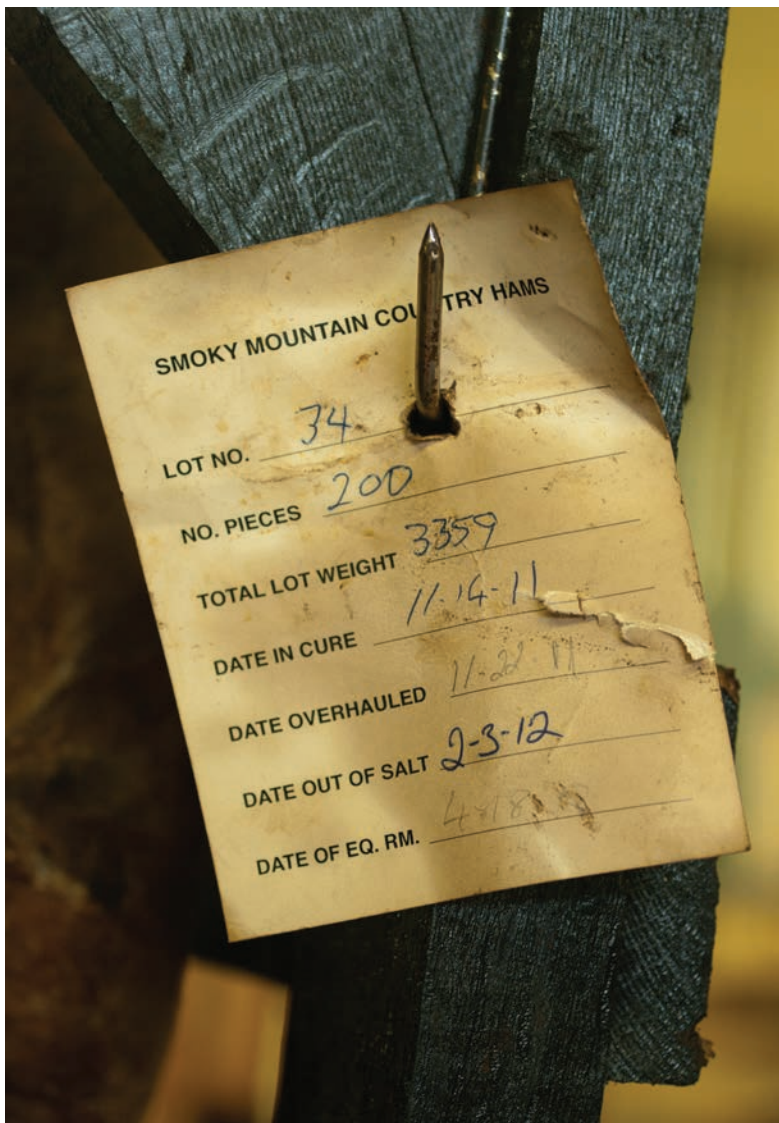 SMOKY MOUNTAIN COUNTRY HAMS
LOT NO. 34
NO. PIECES 200
TOTAL LOT WEIGHT 3359
DATE IN CURE 11-14-11
DATE OVERHAULED 11-22-11
DATE OUT OF SALT 2-3-12
DATE OF EQ. RM.